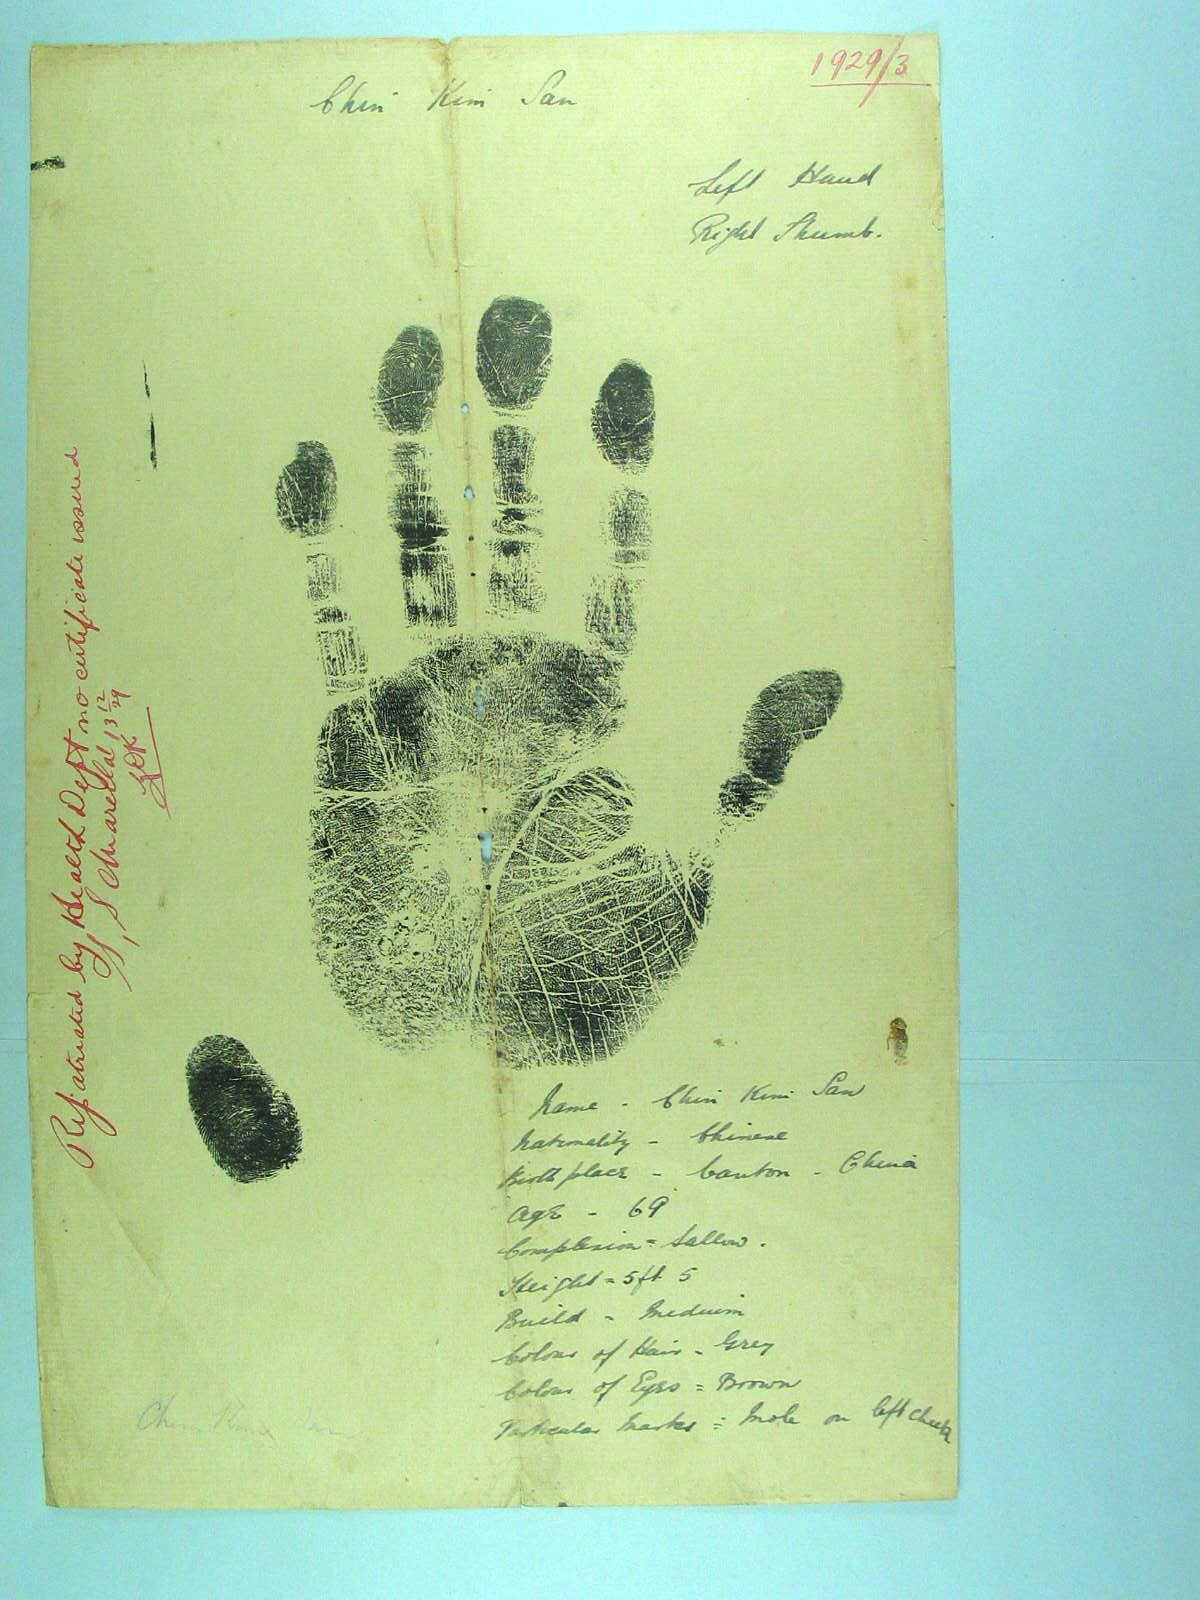 1929/3
Chin Kim San
Left Hand
Right Thumb.
Repatriated by Health Dept no certificate issued
13 12/29
Name - Chin Kim San
Nationality - Chinese
Birth place - Canton - China
Age - 69
Complexion = Sallow.
Height = 5 ft 5
Build - Medium
Colour of Hair - Grey
Colour of Eyes = Brown
Particular Marks = Mole on left cheek
Chin Kim San